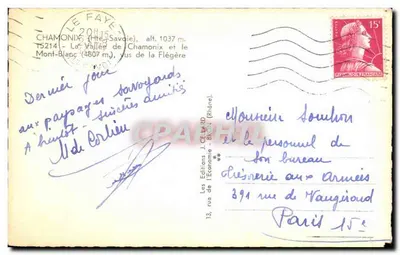 LE FAYET
CHAMONIX. (Hte-Savoie), alt. 1037 m.
15214 - La Vallée de Chamonix et le
Mont-Blanc (4807 m), vus de la Flégère
15F
Dernier jour
aux paysages savoyards
A bientôt. Sincères amitiés
Les Editions J.
13, rue de l'Economie (Rhône)
Monsieur
et le personnel de
son bureau
Trésorerie aux Armées
391 rue de Vaugirard
Paris 15e